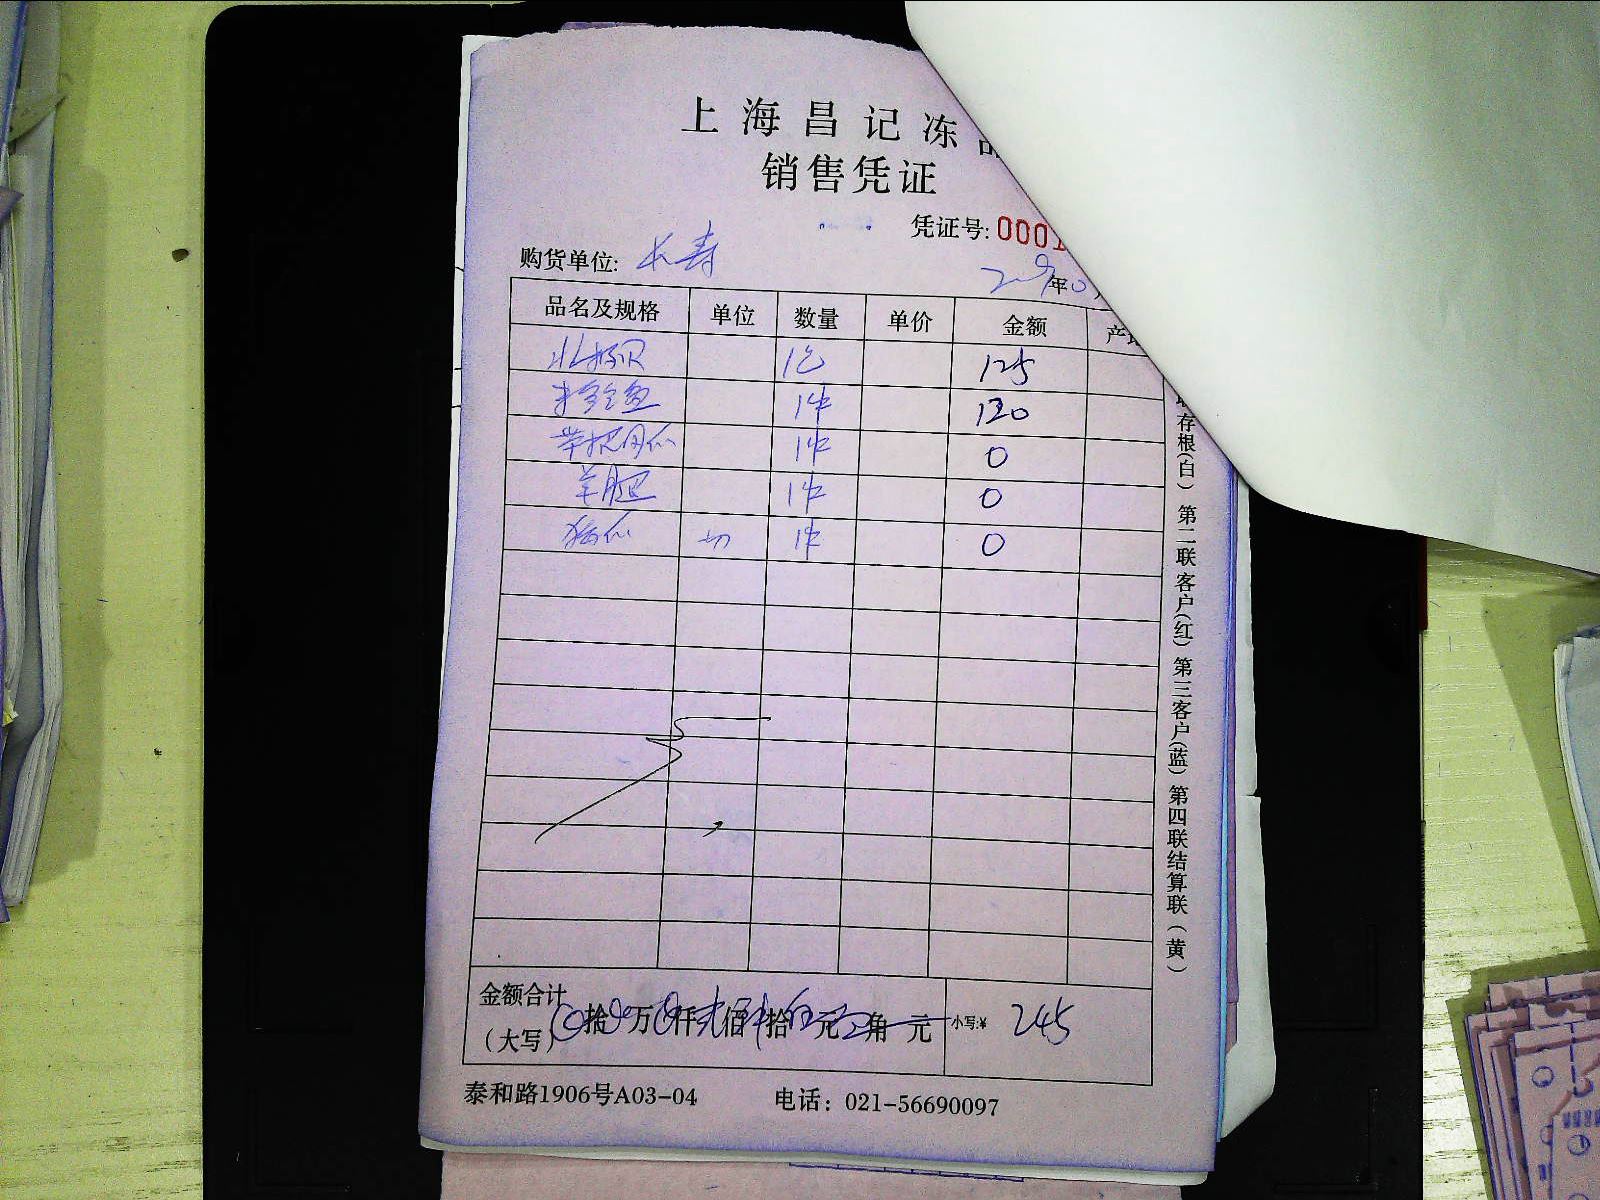 上海昌记冻
销售凭证
凭证号: 0001
购货单位: 长寿
年
品名及规格 单位 数量 单价 金额
北极贝 1包 125
1件 120
1件 0
羊腿 1件 0
切 1件 0
存根(白) 第二联客户(红) 第三客户(蓝) 第四联结算联(黄)
金额合计
(大写) 拾 万 仟 佰 拾 元 角 元 小写:¥ 245
泰和路1906号A03-04 电话: 021-56690097